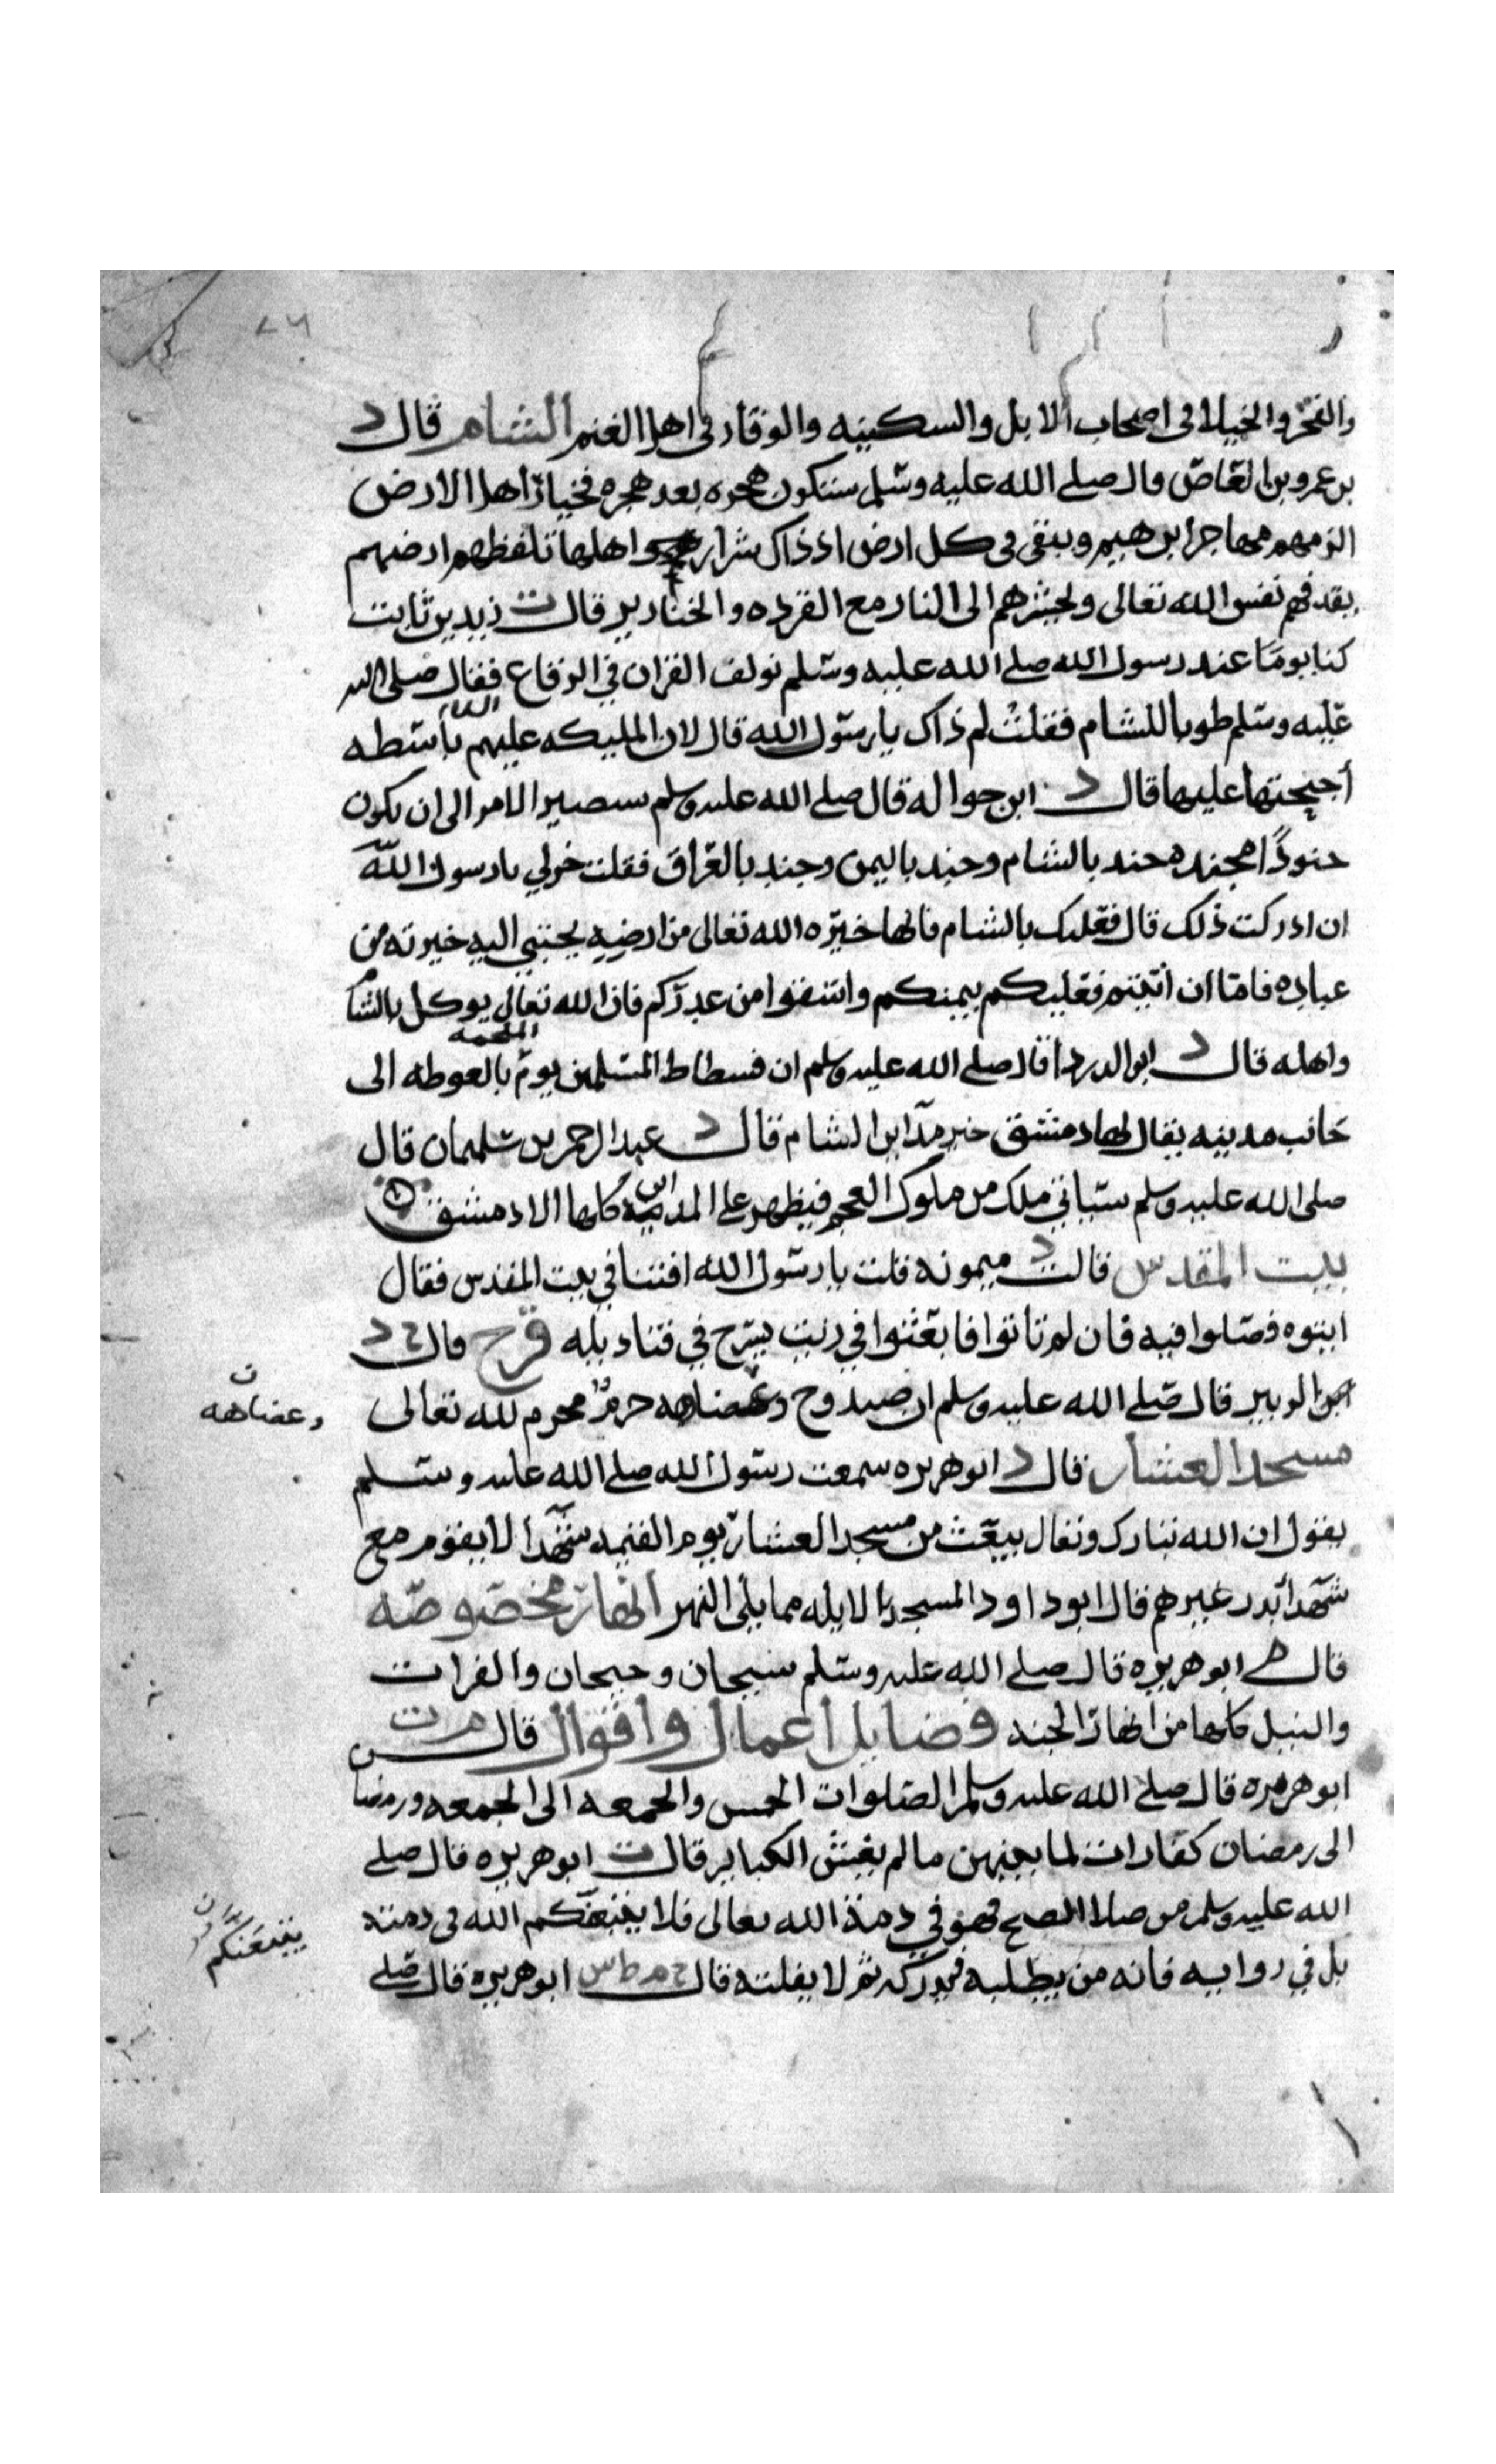 والفخر والخيلا فى اصحاب الابل والسكينه والوقار فى اهل الغنم الشام قال د
بن عمرو بن العاص قال صلى الله عليه وسلم ستكون هجره بعد هجره فخيار اهل الارض
الزمهم مهاجر ابرهيم ويبقى فى كل ارض اذ ذاك شرار اهلها تلفظهم ارضهم
يقدفهم نفس الله تعالى ويحشرهم الى النار مع القرده والخنازير قال ت زيد بن ثابت
كنا يوما عند رسول الله صلى الله عليه وسلم نولف القران في الرقاع فقال صلى الله
عليه وسلم طوبا للشام فقلت لم ذاك يا رسول الله قال لان المليكه عليهم باسطه
أجنحتها عليها قال د ابن حواله قال صلى الله عليه وسلم سيصير الامر الى ان يكون
جنودًا مجنده جند بالشام وجند باليمن وجند بالعراق فقلت خرلي يا رسول الله
ان ادركت ذلك قال فعليك بالشام فانها خيره الله تعالى من ارضه يجتبي اليه خيرته من
عباده فاما ان ابيتم فعليكم بيمنكم واسقوا من غدركم فان الله تعالى يوكل بالشام
واهله قال د ابو الدردا قال صلى الله عليه وسلم ان فسطاط المسلمين يوم الملحمه بالغوطه الى
جانب مدينه يقال لها دمشق خير مداين الشام قال د عبد الرحمن بن سليمان قال
صلى الله عليه وسلم سياتي ملك من ملوك العجم فيظهر على المداين كلها الا دمشق
بيت المقدس قالت د ميمونه قلت يا رسول الله افتنا في بيت المقدس فقال
ايتوه فصلوا فيه فان لم تاتوا فابعثوا في زيت يسرج في قناديله وج قال د
ابن الزبير قال صلى الله عليه وسلم ان صيد وج وعضاهه حرم محرم لله تعالى
ن
وعضاهه
مسجد العشار قال د ابو هريره سمعت رسول الله صلى الله عليه وسلم
يقول ان الله تبارك وتعالى يبعث من مسجد العشار يوم القيمه شهدا لا يقوم مع
شهدا بدر غيرهم قال ابو داود المسجد بالابله مما يلى النهر انهار مخصوصه
قال م ابو هريره قال صلى الله عليه وسلم سيحان وجيحان والفرات
والنيل كلها من انهار الجنه فضايل أعمال واقوال قال م ت
ابو هريره قال صلى الله عليه وسلم الصلوات الخمس والجمعه الى الجمعه ورمضان
الى رمضان كفارات لما بينهن ما لم يغش الكباير قال ت ابو هريره قال صلى
الله عليه وسلم من صلا الصبح فهو في ذمة الله تعالى فلا يتبعنكم الله فى ذمته
يتبعنكم
بل في روايه فانه من يطلبه يدركه ثم لا يفلته قال خ م ط س ابو هريره قال صلى